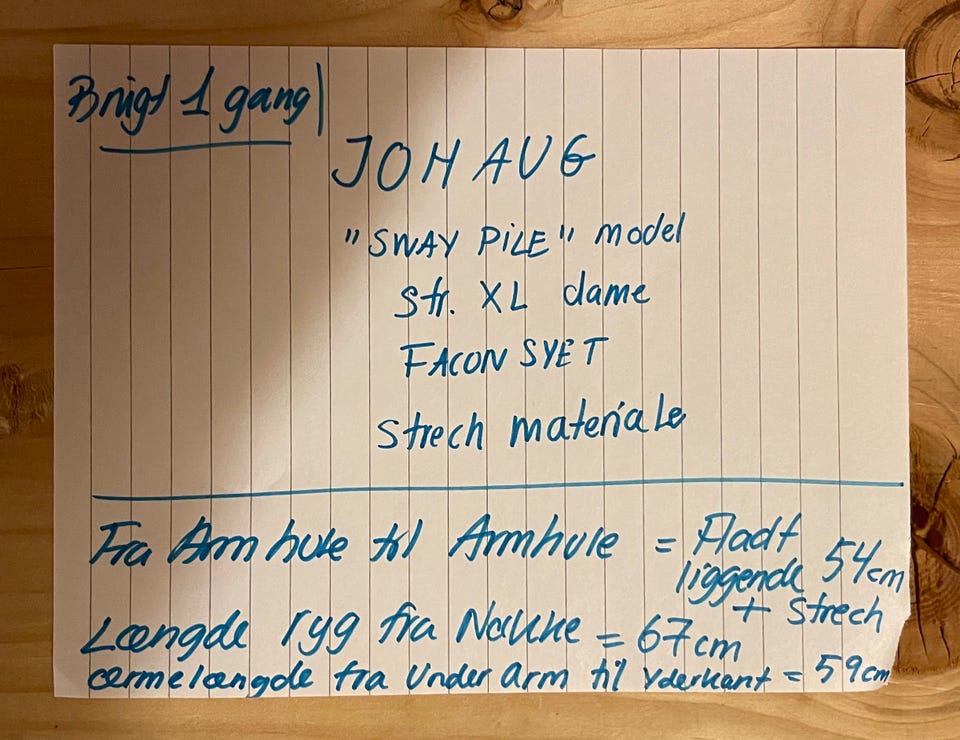 Brugt 1 gang
JOHAUG
"SWAY PILE" model
Str. XL dame
FACON SYET
Strech materiale
Fra Armhule til Armhule = Fladt
liggende 54cm
+ Strech
Længde ryg fra Nakke = 67cm
ærmelængde fra Under arm til Yderkant = 59cm